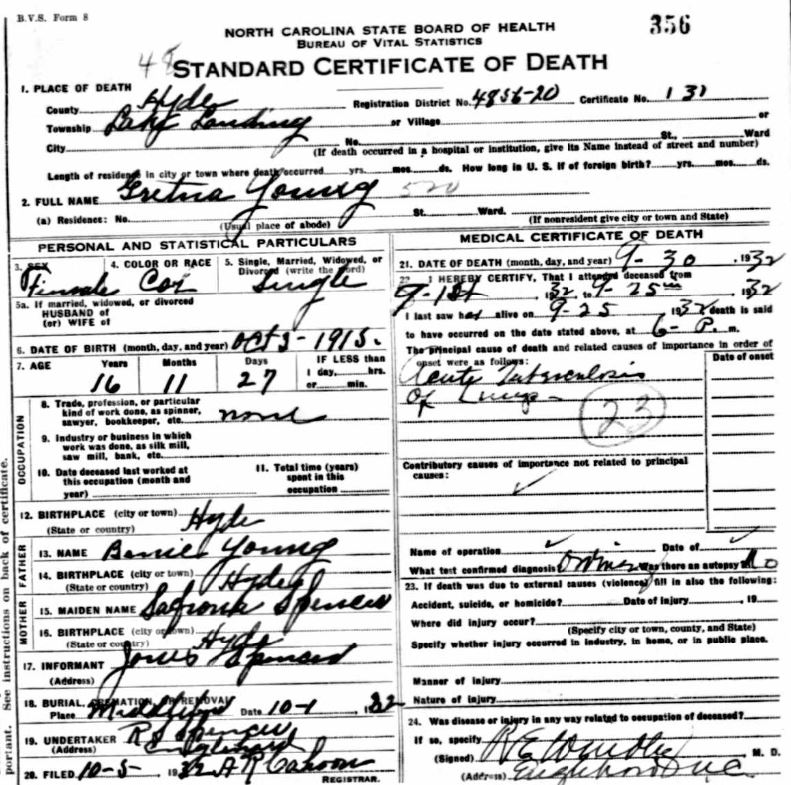 B.V.S. Form 8
356
NORTH CAROLINA STATE BOARD OF HEALTH
BUREAU OF VITAL STATISTICS
48
STANDARD CERTIFICATE OF DEATH
1. PLACE OF DEATH
County Hyde Registration District No. 4856-20 Certificate No. 131
Township Lake Landing or Village or
City No. St., Ward
(If death occurred in a hospital or institution, give its Name instead of street and number)
Length of residence in city or town where death occurred yrs. mos. ds. How long in U. S. if of foreign birth? yrs. mos. ds.
2. FULL NAME Gretna Young 520
(a) Residence: No. St. Ward.
(Usual place of abode) (If nonresident give city or town and State)
PERSONAL AND STATISTICAL PARTICULARS
3. SEX 4. COLOR OR RACE 5. Single, Married, Widowed, or Divorced (write the word)
Female Col Single
5a. If married, widowed, or divorced
HUSBAND of
(or) WIFE of
6. DATE OF BIRTH (month, day, and year) Oct 3-1915.
7. AGE Years Months Days IF LESS than
1 day, hrs.
or min.
16 11 27
OCCUPATION
8. Trade, profession, or particular
kind of work done, as spinner,
sawyer, bookkeeper, etc. none
9. Industry or business in which
work was done, as silk mill,
saw mill, bank, etc.
10. Date deceased last worked at
this occupation (month and
year)
11. Total time (years)
spent in this
occupation
12. BIRTHPLACE (city or town) Hyde
(State or country)
FATHER
13. NAME Young
14. BIRTHPLACE (city or town) Hyde
(State or country)
MOTHER
15. MAIDEN NAME Spencer
16. BIRTHPLACE (city or town) Hyde
(State or country)
17. INFORMANT Spencer
(Address)
18. BURIAL, CREMATION, OR REMOVAL
Place Date 10-1 32
19. UNDERTAKER R S Spencer
(Address) Engelhard
20. FILED 10-5- 1932 A R Cahoon
REGISTRAR.
MEDICAL CERTIFICATE OF DEATH
21. DATE OF DEATH (month, day, and year) 9-30 1932
22. I HEREBY CERTIFY, That I attended deceased from
9-1st 1932 to 9-25 1932
I last saw her alive on 9-25 1932 death is said
to have occurred on the date stated above, at 6-P. m.
The principal cause of death and related causes of importance in order of
onset were as follows:
Date of onset
Acute Tuberculosis
of Lungs
23
Contributory causes of importance not related to principal
causes:
Name of operation Date of
What test confirmed diagnosis? Was there an autopsy? No
23. If death was due to external causes (violence) fill in also the following:
Accident, suicide, or homicide? Date of injury 19
Where did injury occur?
(Specify city or town, county, and State)
Specify whether injury occurred in industry, in home, or in public place.
Manner of injury
Nature of injury
24. Was disease or injury in any way related to occupation of deceased?
If so, specify
(Signed) R E Windley M. D.
(Address) Engelhard N.C.
portant. See instructions on back of certificate.